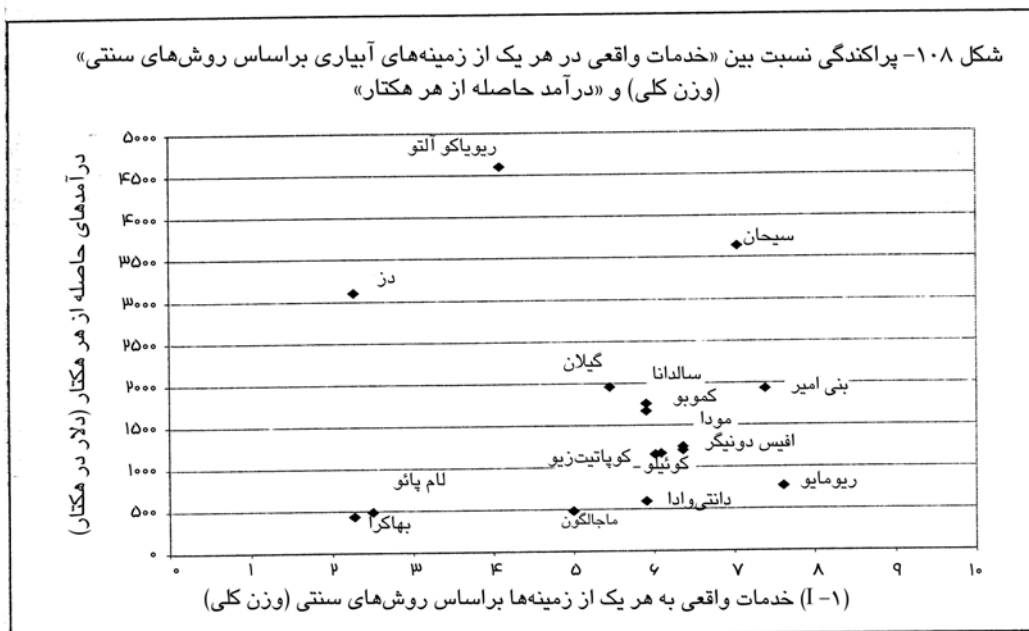 شکل ۱۰۸- پراکندگی نسبت بین «خدمات واقعی در هر یک از زمینه‌های آبیاری براساس روش‌های سنتی»
(وزن کلی) و «درآمد حاصله از هر هکتار»
درآمدهای حاصله از هر هکتار (دلار در هکتار)
۵۰۰۰
۴۵۰۰
۴۰۰۰
۳۵۰۰
۳۰۰۰
۲۵۰۰
۲۰۰۰
۱۵۰۰
۱۰۰۰
۵۰۰
۰
ریویاکو آلتو
سیحان
دز
گیلان
سالدانا
بنی امیر
کموبو
مودا
افیس دونیگر
کوپاتیت‌زیو
کوئیلو
لام پائو
ریومایو
دانتی‌وادا
بهاکرا
ماجالگون
۰ ۱ ۲ ۳ ۴ ۵ ۶ ۷ ۸ ۹ ۱۰
(I -۱) خدمات واقعی به هر یک از زمینه‌ها براساس روش‌های سنتی (وزن کلی)